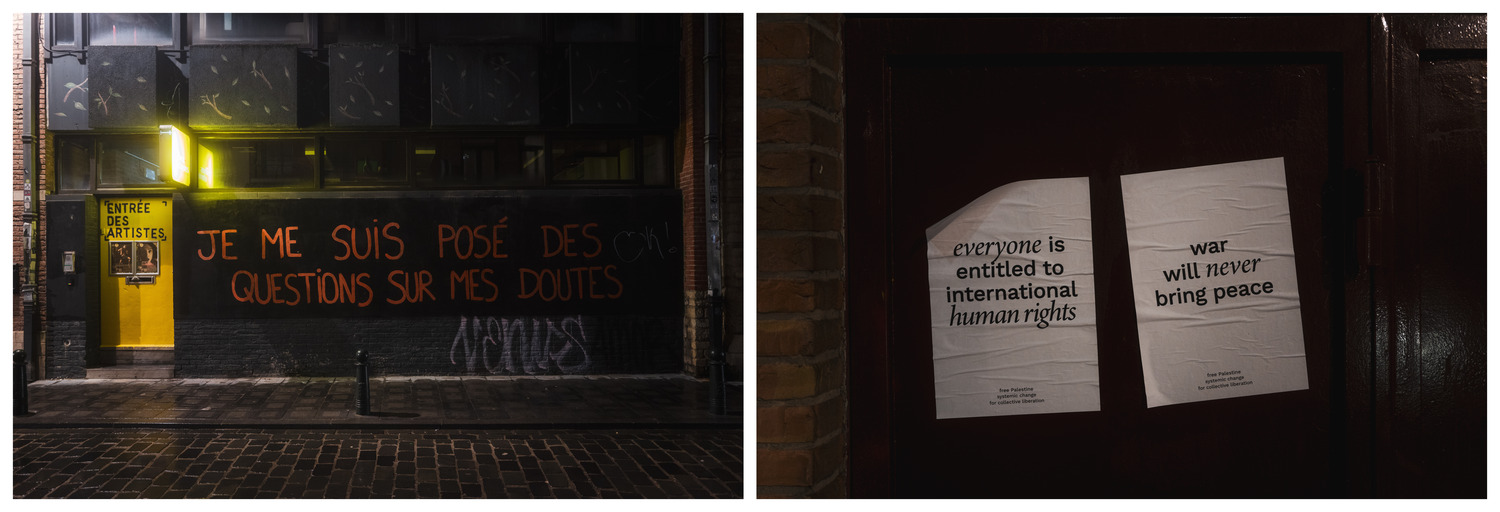 ENTRÉE
DES
ARTISTES
JE ME SUIS POSÉ DES
QUESTIONS SUR MES DOUTES
Ok!
venus
everyone is
entitled to
international
human rights
free Palestine
systemic change
for collective liberation
war
will never
bring peace
free Palestine
systemic change
for collective liberation